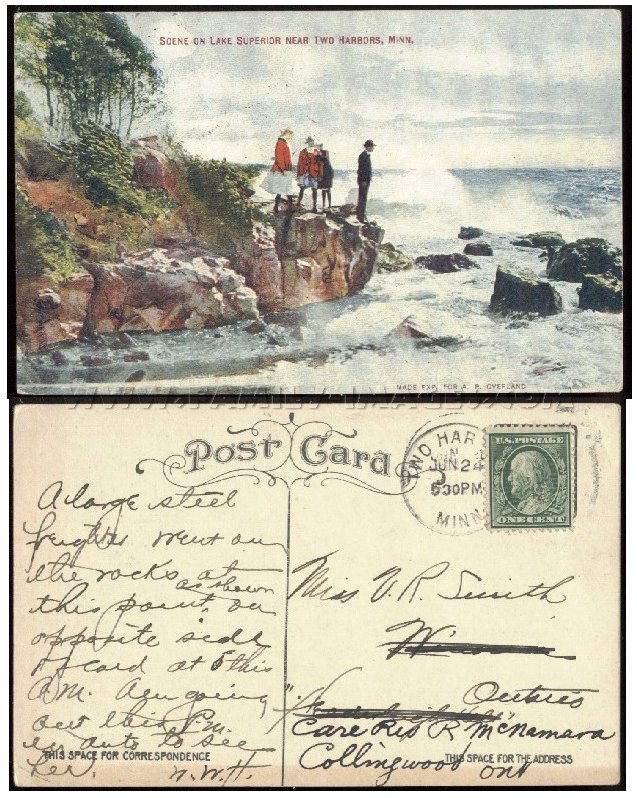 SCENE ON LAKE SUPERIOR NEAR TWO HARBORS, MINN.
MADE EXP. FOR A. P. OVERLAND
WWW.FAMILY-IMAGES.COM
Post Card
TWO HAR
JUN 24
530PM
MINN
U.S. POSTAGE
ONE CENT
A large steel
freighter went on
the rocks at
as shown
this point, on
opposite side
of card at 5 this
A.M. Am going
out this P.M.
in auto to see
her.
THIS SPACE FOR CORRESPONDENCE
Miss V. R. Smith
Ontario
Care R. McNamara
Collingwood Ont
THIS SPACE FOR THE ADDRESS